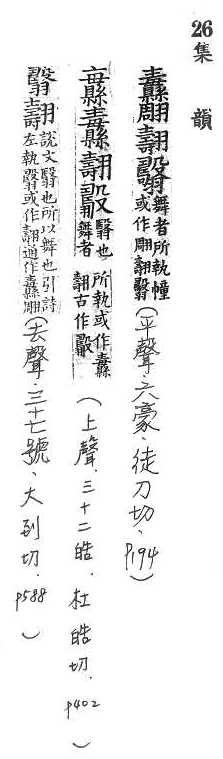 26集 韻
纛翢翿 舞者所執幢或作翢翿(平聲、六豪、徒刀切、P194)
翿 翳也舞者所執或作纛翿古作(上聲、三十二皓、杜皓切、p402)
翿 說文翳也所以舞也引詩左執或作翿通作纛翢(去聲、三十七號、大到切、p588)